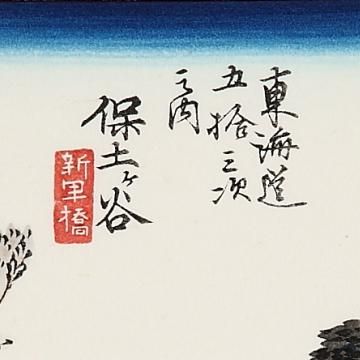 東海道
五拾三次
之内
保土ヶ谷
新里橋